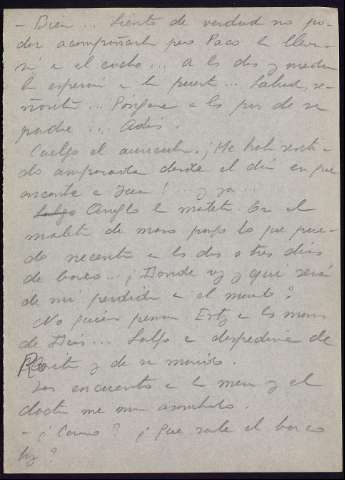 - Bien... Siento de verdad no po-
der acompañarla pero Paco la lleva-
rá en el coche... A las dos y media
la espera en la puerta... Salud, se-
ñorita... Póngame a los pies de su
padre... Adiós.
Cuelgo el auricular. ¡Me había senti-
do amparada desde el día en que
encontré a Juan! ... y ya...
Arreglo la maleta. En el
maletín de mano pongo lo que pue-
do necesitar en los dos o tres días
de barco... ¿Donde voy y que será
de mi perdida en el mundo?
No quiero pensar. Estoy en las manos
de Dios... Salgo a despedirme de
Rosita y de su marido.
Los encuentro en la mesa y el
doctor me mira asombrado.
- ¿Como? ¿Que sale el barco
hoy?